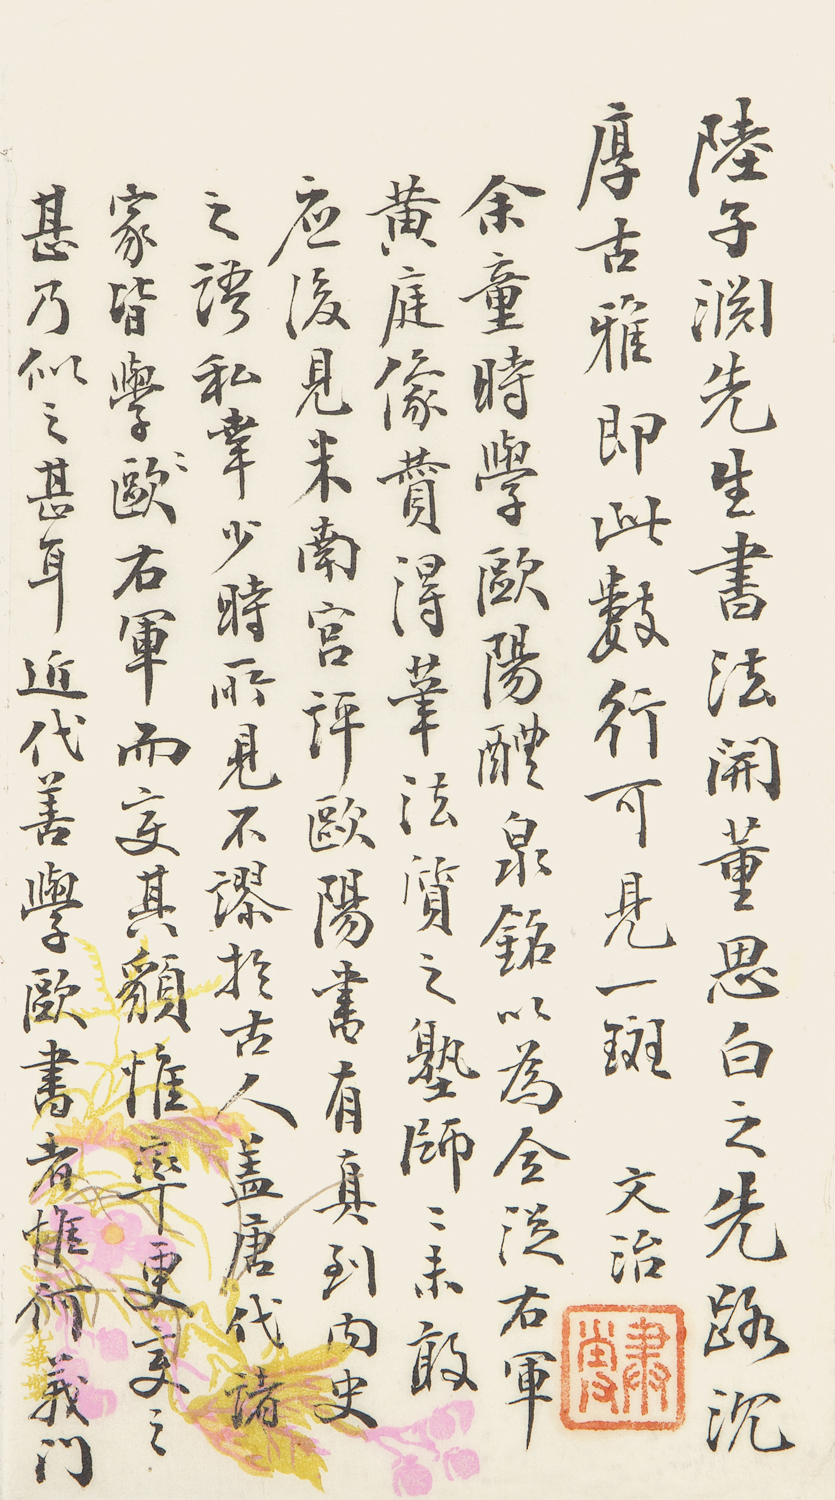 陸子淵先生書法開董思白之先路沉
厚古雅即此數行可見一斑 文治
余童時學歐陽醴泉銘以為全從右軍
黃庭像贊得筆法質之塾師〻未敢
应後見米南宮評歐陽書有真到內史
之語私幸少時所見不謬於古人蓋唐代諸
家皆學歐右軍而变其貌惟率更变之
甚乃似之甚耳近代善學歐書者惟何義門